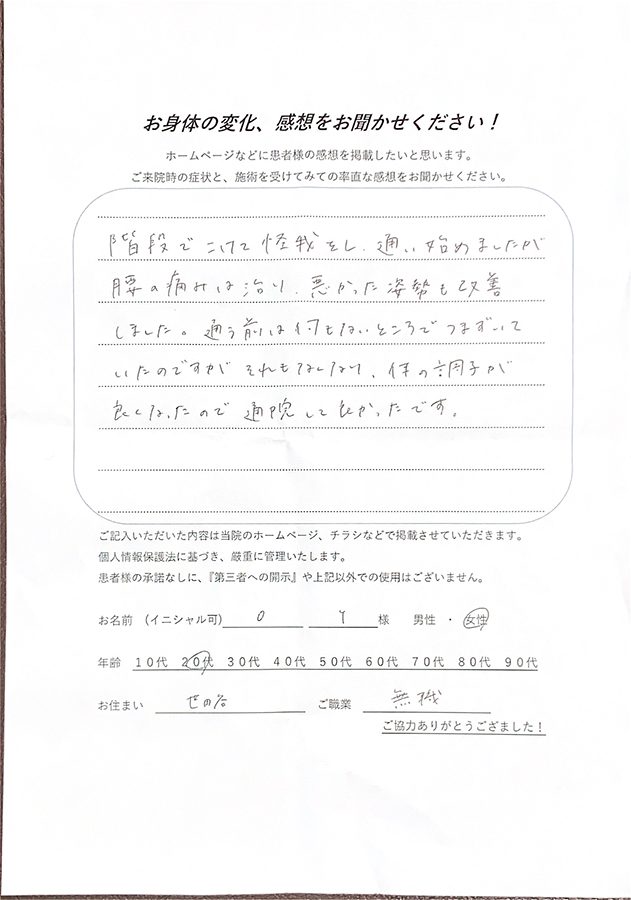 お身体の変化、感想をお聞かせください！
ホームページなどに患者様の感想を掲載したいと思います。
ご来院時の症状と、施術を受けてみての率直な感想をお聞かせください。
階段でこけて怪我をし、通い始めましたが
腰の痛みは治り、悪かった姿勢も改善
しました。通う前は何もないところでつまずいて
いたのですがそれもなくなり、体の調子が
良くなったので通院して良かったです。
ご記入いただいた内容は当院のホームページ、チラシなどで掲載させていただきます。
個人情報保護法に基づき、厳重に管理いたします。
患者様の承諾なしに、『第三者への開示』や上記以外での使用はございません。
お名前 （イニシャル可） O Y 様 男性 ・ 女性
年齢 10代 20代 30代 40代 50代 60代 70代 80代 90代
お住まい せの谷 ご職業 無機
ご協力ありがとうござました！